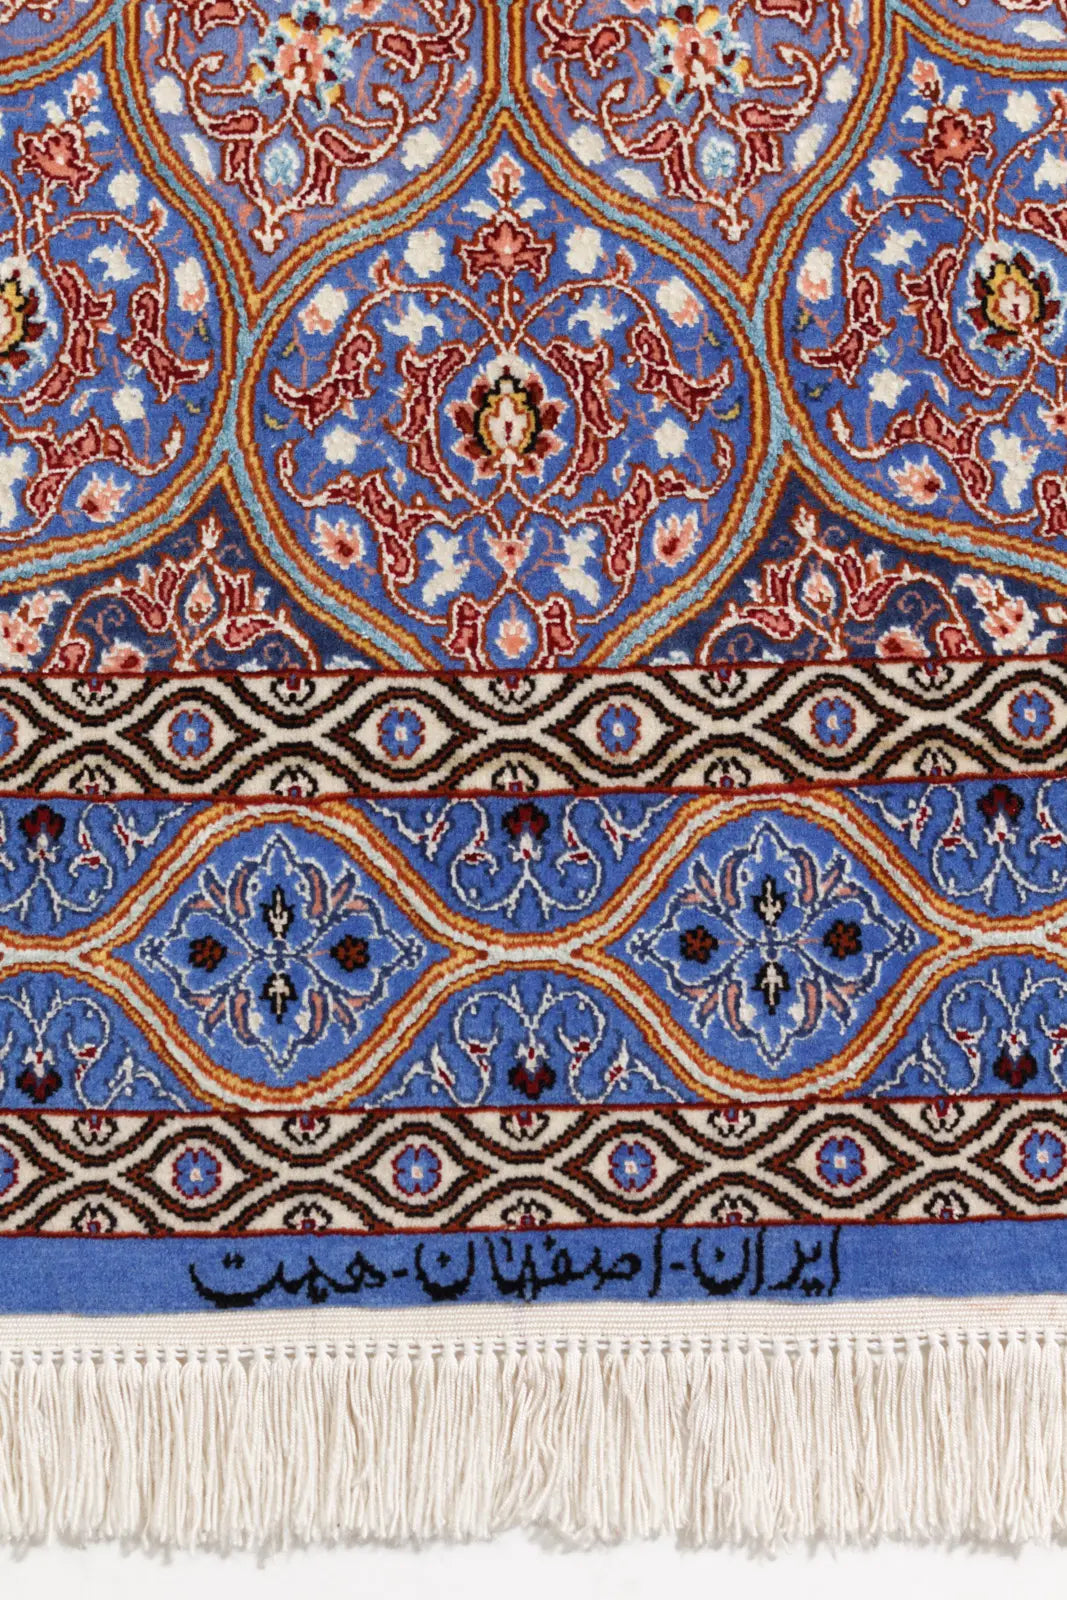 ایران - اصفهان - همت